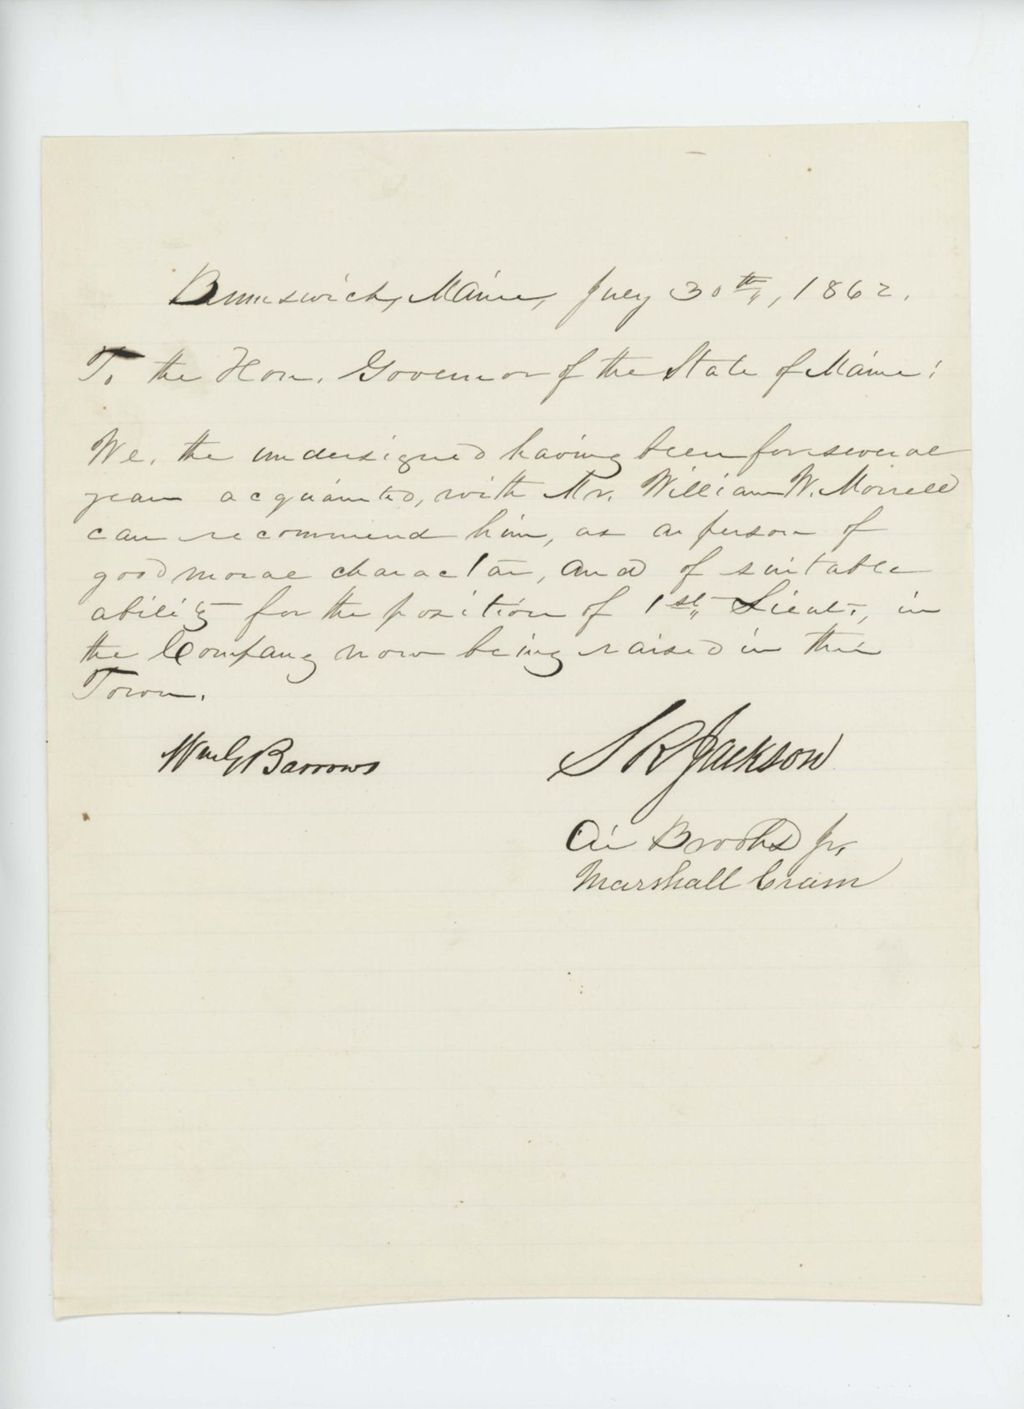 Brunswick, Maine, July 30th, 1862.
To the Hon. Governor of the State of Maine:
We, the undersigned having been for several
years acquainted, with Mr. William W. Morrell
can recommend him, as a person of
good moral character, and of suitable
ability for the position of 1st Lieut., in
the Company now being raised in this
Town.
Wm G Barrows
S R Jackson
Brooks Jr.
Marshall Cram